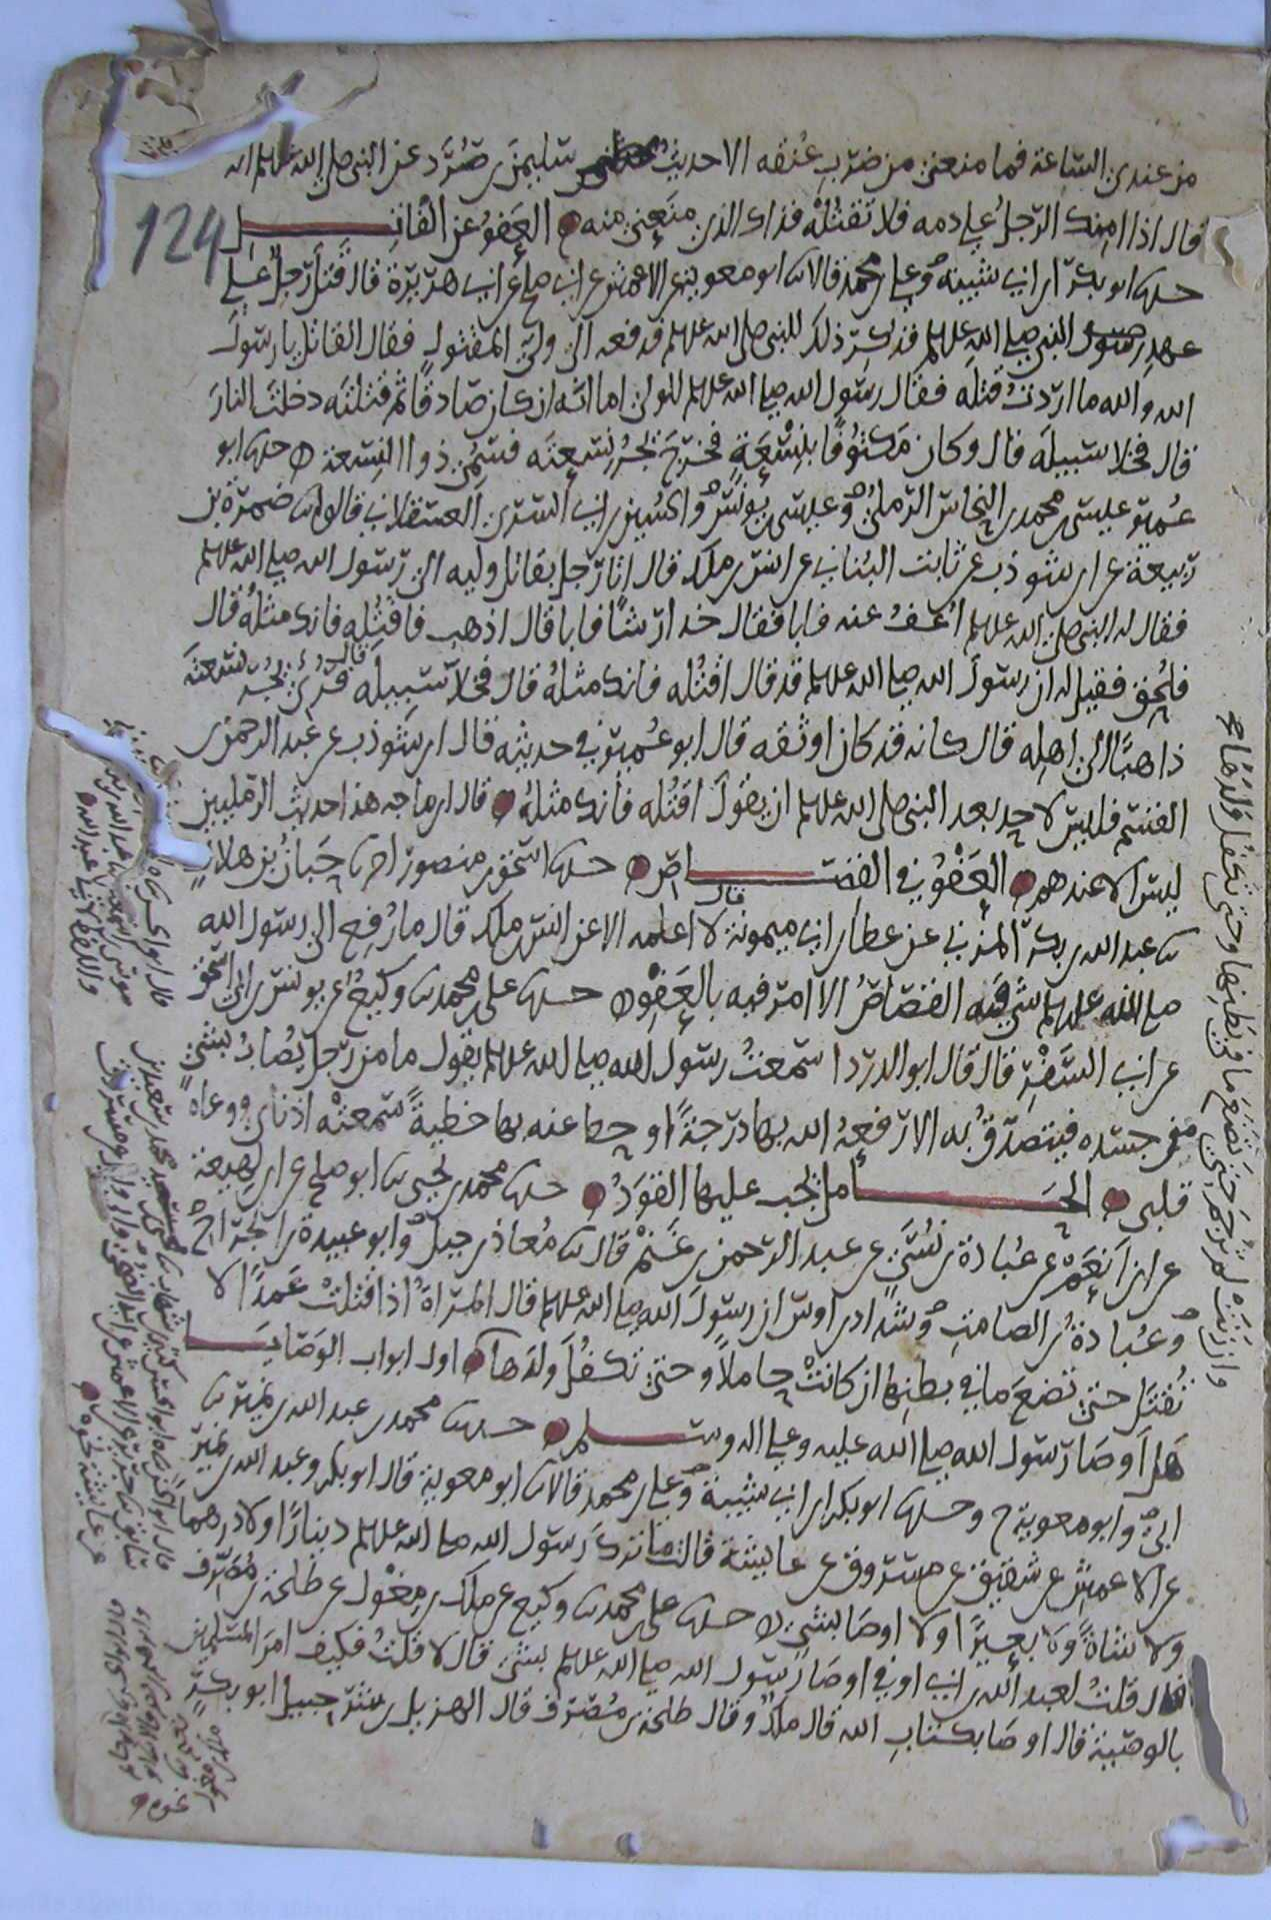 من عندي الساعة فما منعني من ضرب عنقه الا حديث سليمن بن صرد عن النبي صلى الله عليه وسلم انه
قال اذا امنك الرجل على دمه فلا تقتله فذاك الذي منعني منه العفو عن القاتل
حدثنا ابو بكر بن ابي شيبة وعلي بن محمد قالا ثنا ابو معوية عن الاعمش عن ابي صلح عن ابي هريرة قال قتل رجل على
عهد رسول النبي صلى الله عليه وسلم فذكر ذلك للنبي صلى الله عليه وسلم فدفعه الى ولي المقتول فقال القاتل يا رسول
الله والله ما اردت قتله فقال رسول الله صلى الله عليه وسلم للولي اما انه ان كان صادقا ثم قتلته دخلت النار
قال فخلا سبيله قال وكان مكتوفا بنسعة فخرج يجر نسعته فسمي ذوا النسعة حدثنا ابو
عمير عيسى بن محمد بن النحاس الرملي وعيسى بن يونس والحسين بن ابي السري العسقلاني قالوا ثنا ضمرة بن
ربيعة عن ابن شوذب عن ثابت البناني عن انس بن ملك قال اتا رجل بقاتل وليه الى رسول الله صلى الله عليه وسلم
فقال له النبي صلى الله عليه وسلم اعف عنه فابا فقال خذ ارشا فابا قال اذهب فاقتله فانك مثله قال
فلحق فقيل له ان رسول الله صلى الله عليه وسلم قد قال اقتله فانك مثله قال فخلا سبيله قال فرئي يجر نسعته
ذاهبا الى اهله قال كانه قد كان اوثقه قال ابو عمير في حديثه قال ابن شوذب عن عبد الرحمن بن
القسم فليس لاحد بعد النبي صلى الله عليه وسلم ان يقول اقتله فانك مثله قال ابن ماجه هذا حديث الرمليين
ليس الا عندهم العفو في القصاص حدثنا اسحق بن منصور اخبرنا حبان بن هلال
ثنا عبد الله بن بكر المزني عن عطا بن ابي ميمونة قال لا اعلمه الا عن انس بن ملك قال ما رفع الى رسول الله
صلى الله عليه وسلم شي فيه القصاص الا امر فيه بالعفو حدثنا علي بن محمد ثنا وكيع عن يونس بن ابي اسحق
عن ابي السفر قال قال ابو الدردا سمعت رسول الله صلى الله عليه وسلم يقول ما من رجل يصاب بشي
من جسده فيتصدق به الا رفعه الله بها درجة او حط عنه بها خطية سمعته اذناي ووعاه
قلبي الحامل يجب عليها القود حدثنا محمد بن يحيى ثنا ابو صلح عن ابن لهيعة
عن ابن انعم عن عبادة بن نسي عن عبد الرحمن بن غنم قال ثنا معاذ بن جبل وابو عبيدة بن الجراح
وعبادة بن الصامت وشداد بن اوس ان رسول الله صلى الله عليه وسلم قال المراة اذا قتلت عمدا لا
تقتل حتى تضع ما في بطنها ان كانت حاملا وحتى تكفل ولدها اول ابواب الوصايا
هل اوصا رسول الله صلى الله عليه وعلى اله وسلم حدثنا محمد بن عبد الله بن نمير ثنا
ابي وابو معوية ح وحدثنا ابو بكر بن ابي شيبة وعلي بن محمد قالا ثنا ابو معوية قال ابو بكر وعبد الله بن نمير
عن الاعمش عن شقيق عن مسروق عن عايشة قالت ما ترك رسول الله صلى الله عليه وسلم دينارا ولا درهما
ولا شاة ولا بعيرا ولا اوصا بشي حدثنا علي بن محمد ثنا وكيع عن ملك بن مغول عن طلحة بن مصرف
قال قلت لعبد الله بن ابي اوفى اوصا رسول الله صلى الله عليه وسلم بشي قال لا قلت فكيف امر المسلمين
بالوصية قال اوصا بكتاب الله قال ملك وقال طلحة بن مصرف قال الهزيل بن شرحبيل ابو بكر
وان زنت لم ترجم حتى تضع ما في بطنها وحتى تكفل ولدها صح
124